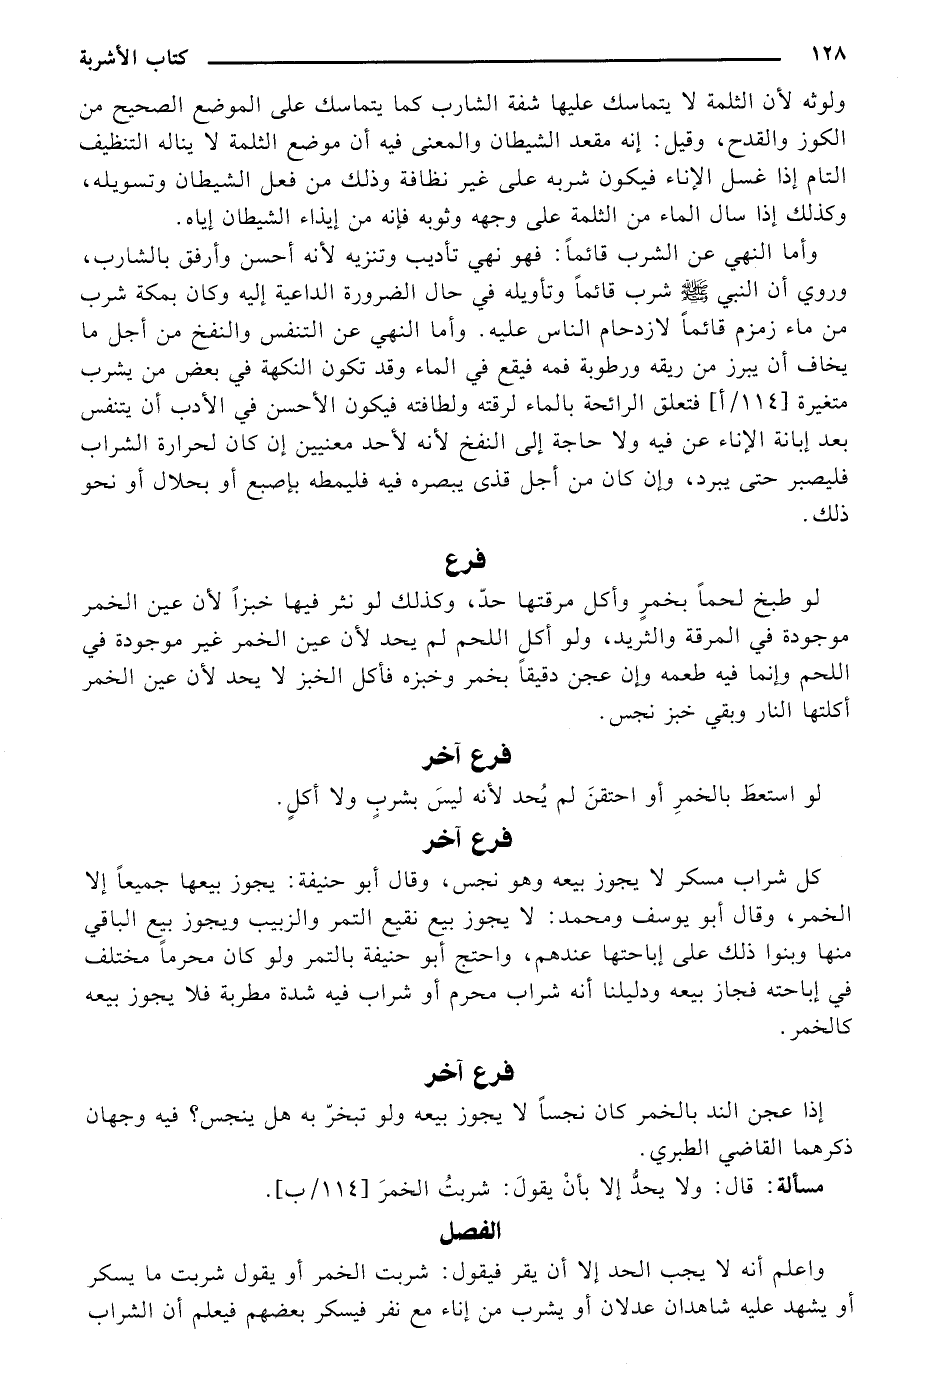 ١٢٨ كتاب الأشربة
ولوثه لأن الثلمة لا يتماسك عليها شفة الشارب كما يتماسك على الموضع الصحيح من
الكوز والقدح، وقيل: إنه مقعد الشيطان والمعنى فيه أن موضع الثلمة لا يناله التنظيف
التام إذا غسل الإناء فيكون شربه على غير نظافة وذلك من فعل الشيطان وتسويله،
وكذلك إذا سال الماء من الثلمة على وجهه وثوبه فإنه من إيذاء الشيطان إياه.
وأما النهي عن الشرب قائماً: فهو نهي تأديب وتنزيه لأنه أحسن وأرفق بالشارب،
وروي أن النبي ﷺ شرب قائماً وتأويله في حال الضرورة الداعية إليه وكان بمكة شرب
من ماء زمزم قائماً لازدحام الناس عليه. وأما النهي عن التنفس والنفخ من أجل ما
يخاف أن يبرز من ريقه ورطوبة فمه فيقع في الماء وقد تكون النكهة في بعض من يشرب
متغيرة [١١٤/أ] فتعلق الرائحة بالماء لرقته ولطافته فيكون الأحسن في الأدب أن يتنفس
بعد إبانة الإناء عن فيه ولا حاجة إلى النفخ لأنه لأحد معنيين إن كان لحرارة الشراب
فليصبر حتى يبرد، وإن كان من أجل قذى يبصره فيه فليمطه بإصبع أو بحلال أو نحو
ذلك.
فرع
لو طبخ لحماً بخمرٍ وأكل مرقتها حدّ، وكذلك لو نثر فيها خبزاً لأن عين الخمر
موجودة في المرقة والثريد، ولو أكل اللحم لم يحد لأن عين الخمر غير موجودة في
اللحم وإنما فيه طعمه وإن عجن دقيقاً بخمر وخبزه فأكل الخبز لا يحد لأن عين الخمر
أكلتها النار وبقي خبز نجس.
فرع آخر
لو استعطَ بالخمرِ أو احتقنَ لم يُحد لأنه ليسَ بشربٍ ولا أكلٍ.
فرع آخر
كل شراب مسكر لا يجوز بيعه وهو نجس، وقال أبو حنيفة: يجوز بيعها جميعاً إلا
الخمر، وقال أبو يوسف ومحمد: لا يجوز بيع نقيع التمر والزبيب ويجوز بيع الباقي
منها وبنوا ذلك على إباحتها عندهم، واحتج أبو حنيفة بالتمر ولو كان محرماً مختلف
في إباحته فجاز بيعه ودليلنا أنه شراب محرم أو شراب فيه شدة مطربة فلا يجوز بيعه
كالخمر.
فرع آخر
إذا عجن الند بالخمر كان نجساً لا يجوز بيعه ولو تبخرّ به هل ينجس؟ فيه وجهان
ذكرهما القاضي الطبري.
مسألة: قال: ولا يحدُّ إلا بأنْ يقولَ: شربتُ الخمرَ [١١٤/ب].
الفصل
واعلم أنه لا يجب الحد إلا أن يقر فيقول: شربت الخمر أو يقول شربت ما يسكر
أو يشهد عليه شاهدان عدلان أو يشرب من إناء مع نفر فيسكر بعضهم فيعلم أن الشراب